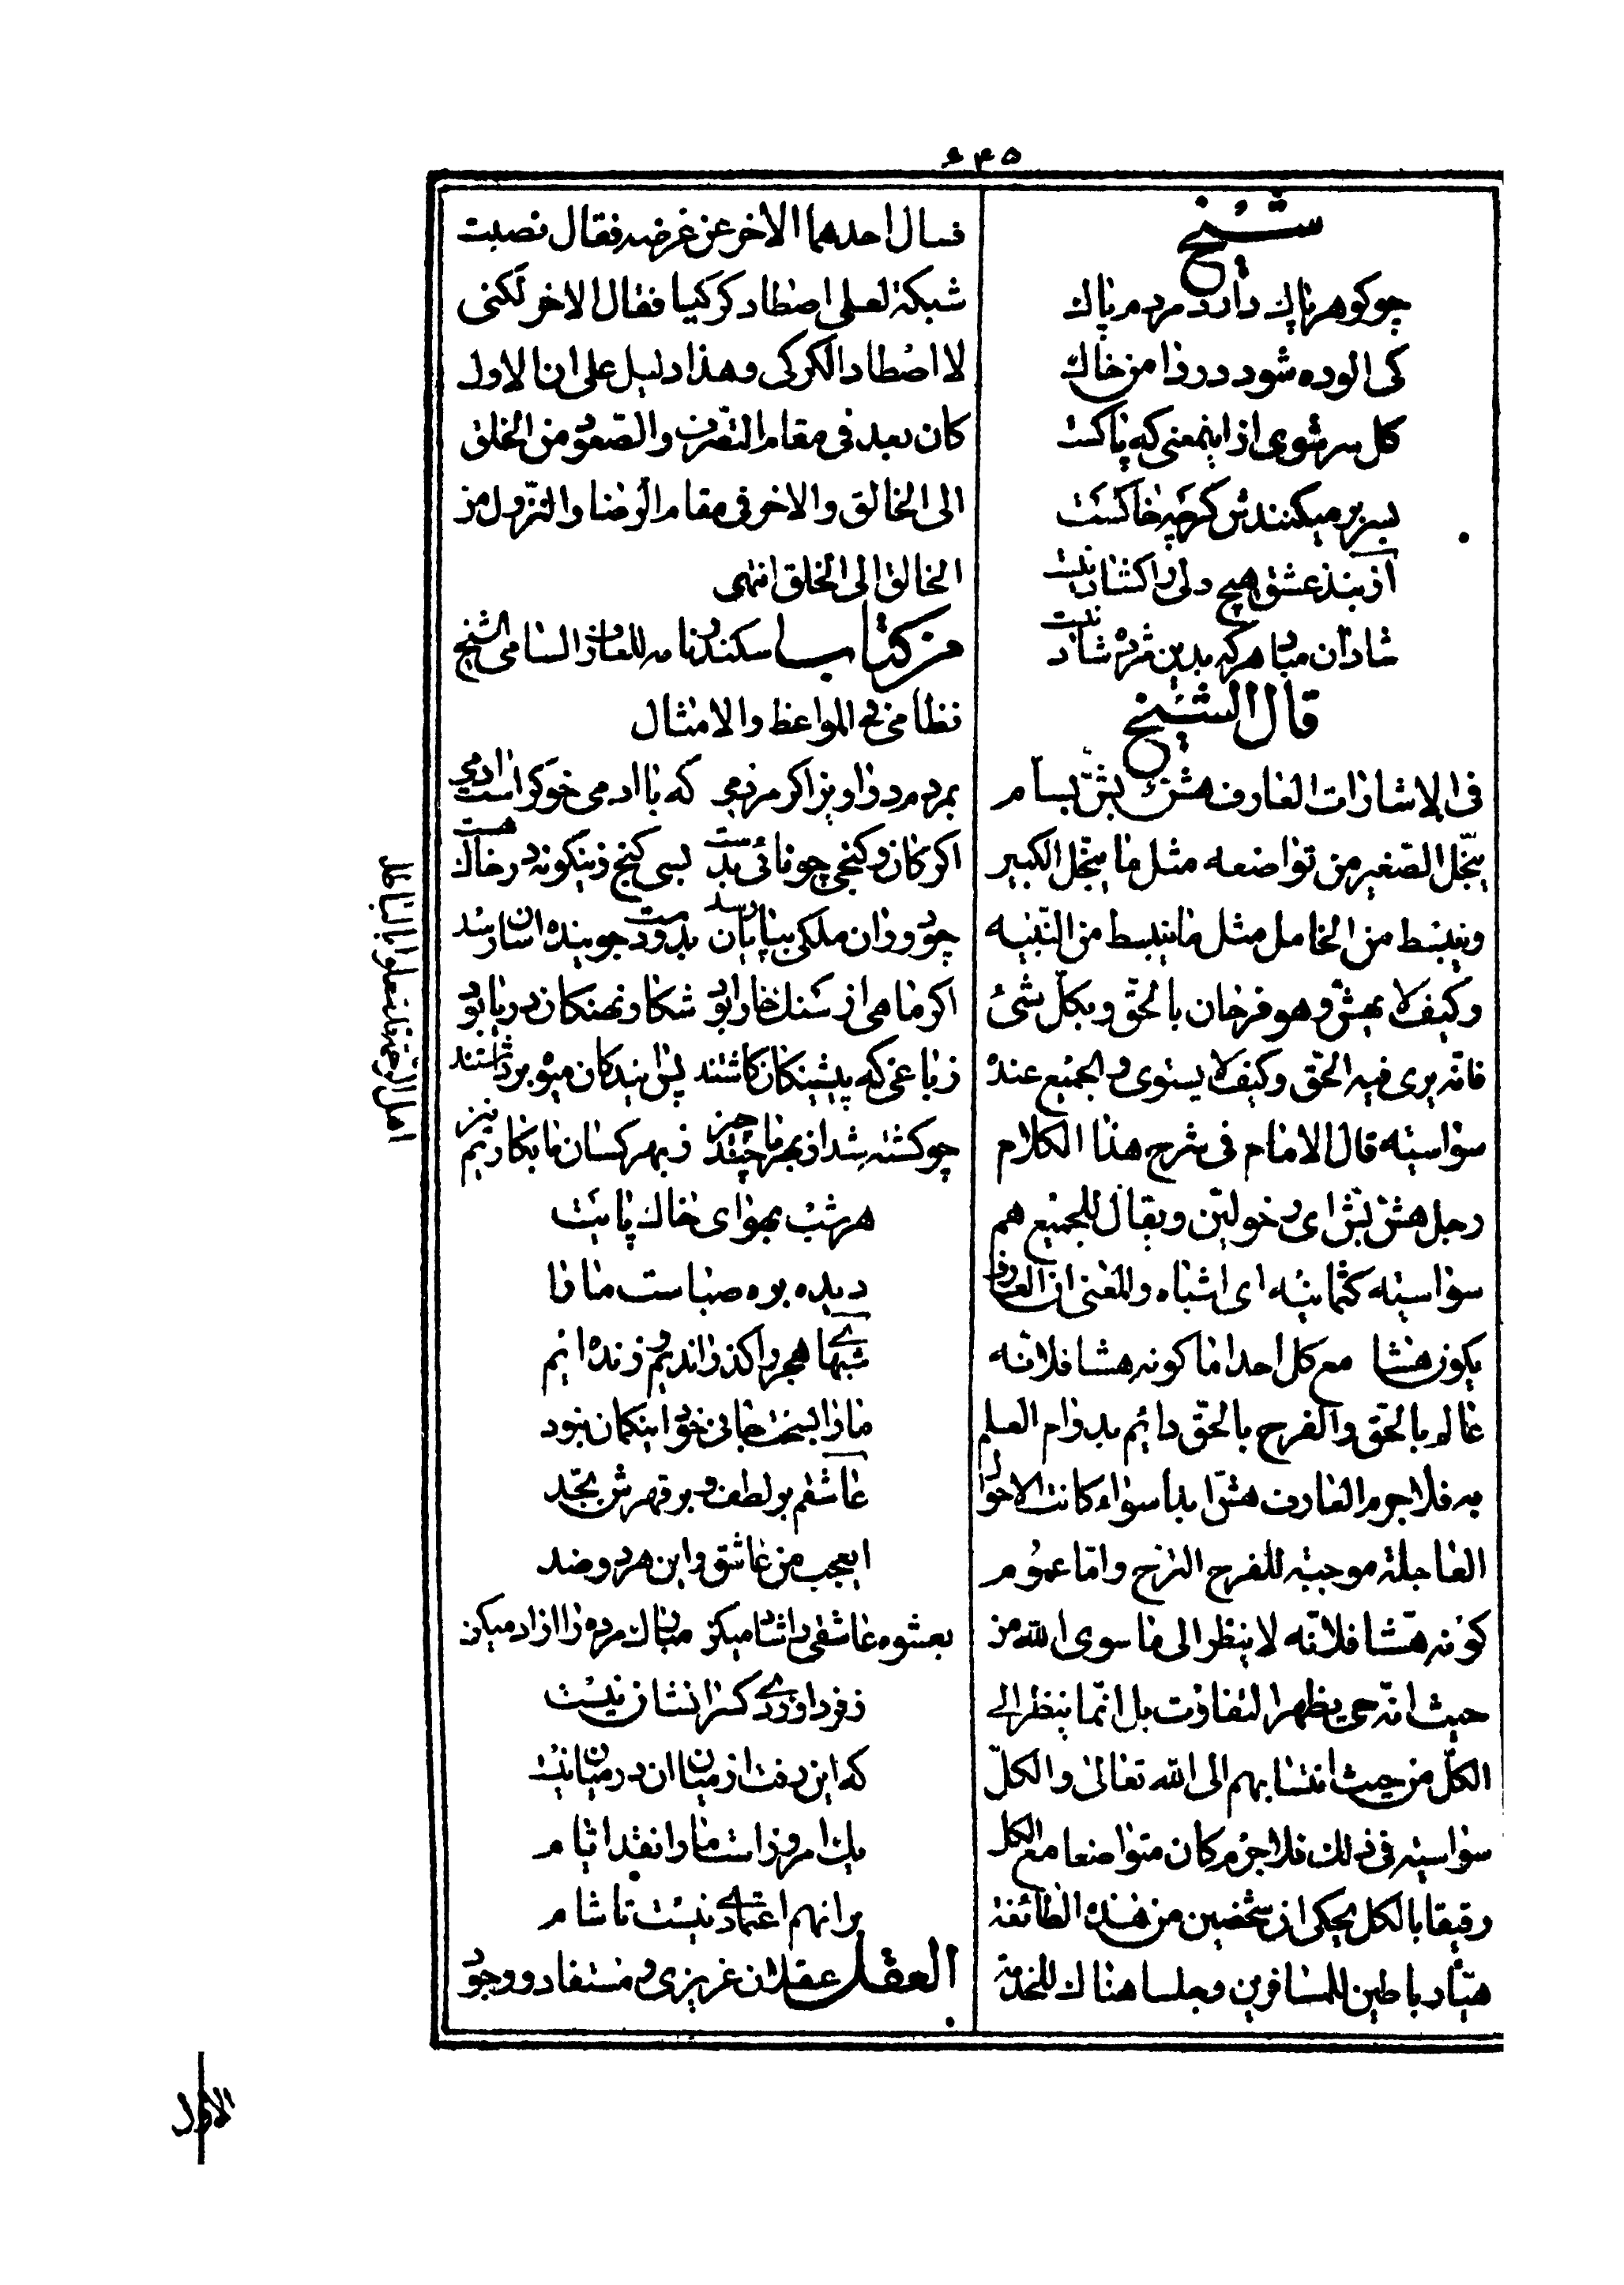 ۶۴۵
شیخ
چو گوهر پاک دارد مردم پاک
کی الوده شود در دامن خاک
کل سرشوی از اینمعنی که پاکست
بسر بر میکنندش کرچه خاکست
از بند عشق هیچ دلی را کشاد نیست
شادان مباد هر که بدین مژده شاد نیست
قال الشیخ
فی الاشارات العارف هش بش بسام
یبجل الصغیر من تواضعه مثل ما یبجل الکبیر
وینبسط من الخامل مثل ما ینبسط من النبیه
وکیف لا یهش وهو فرحان بالحق وبکل شیء
فانه یری فیه الحق وکیف لا یستوی والجمیع عنده
سواسیه قال الامام فی شرح هذا الکلام
رجل هش بش ای ذخولین ویقال للجمیع هم
سواسیه کثمانیه ای اشباه والمعنی ان العارف
یکون هشا مع کل احد اما کونه هشا فلانه
عالم بالحق والفرح بالحق دائم بدوام العلم
به فلاجرم العارف هش ابدا سواء کانت الاحوال
العاجلة موجبه للفرح الترح واما عموم
کونه هشا فلانه لا ینظر الی ما سوی الله من
حیث انه حی یظهر التفاوت بل انما ینظر الی
الکل من حیث انتسابهم الی الله تعالی والکل
سواسیه فی ذلک فلاجرم کان متواضعا مع الکل
رفیقا بالکل یحکی ان شخصین من هذه الطائفة
هیأ رباطین للمسافرین وجلسا هناک للخدمة
فسال احدهما الاخر عن غرضه فقال نصبت
شبکة لعلی اصطاد کرکیا فقال الاخر لکنی
لا اصطاد الکرکی وهذا دلیل علی ان الاول
کان بعد فی مقام التصرف والصعود من الخلق
الی الخالق والاخر فی مقام الرضا والنزول من
الخالق الی الخلق انتهی
من کتاب سکندرنامه للعارف السامی الشیخ
نظامی فی المواعظ والامثال
بمردم در اویز اکر مردمی که با ادمی خوکر است ادمی
اکر کان و کنجی چو نائی بدست بسی کنج زینکونه در خاک هست
چو دوران ملکی بپایان رسد بدو دست جوینده اسان رسد
اکر ماهی از سنک خارا بود شکار نهنکان دریا بود
ز باغی که پیشینکان کاشتند پس ایندکان میوه برداشتند
چو کشته شد از بهر ما چند چیز ز بهر کسان ما بکاریم نیز
هر شب بهوای خاک پایت
دیده بره صباست ما را
شبهای هجر را کذراندیم و زنده ایم
ما را بسخت جانی خود اینکمان نبود
عاشقم بر لطف و بر قهرش بجد
ایعجب من عاشق و این هر دو ضد
بعشوه عاشقی را شاد میکن مبارک مرده را ازاد میکن
ز فردا و ز دی کس را نشان نیست
که این رفت از میان ان در میان نیست
یک امروز است ما را نقد ایام
بر انهم اعتمادی نیست تا شام
العقل عقلان غریزی و مستفاد ووجود
الاول